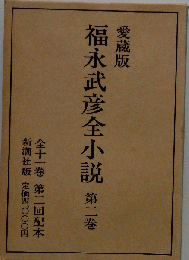 愛蔵版
福永武彦全小説 第二巻
全十一巻 第二回配本
新潮社版